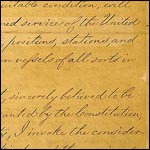 suitable condition, will
ed service of the United
positions, stations, and
n vessels of all sorts in
t, sincerely believed to be
anted by the Constitution,
y, I invoke the consider